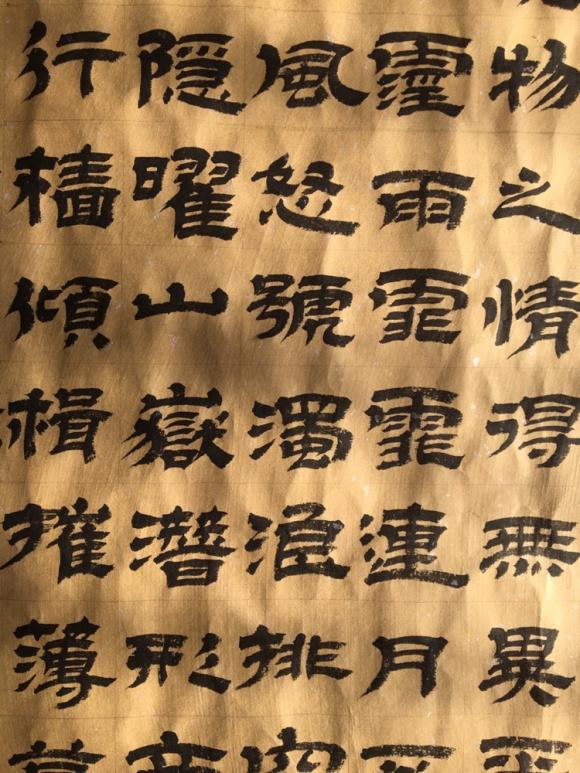 物之情得無異
霪雨霏霏連月
風怒號濁浪排
隱曜山嶽潛形
行檣傾楫摧薄